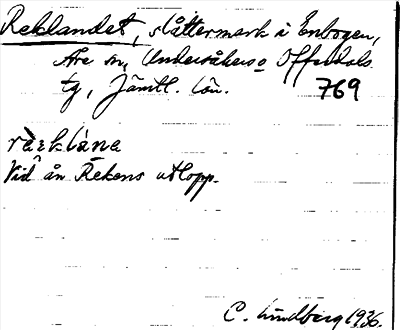 Reklandet, slåttermark i Enbogen,
Åre sn, Undersåkers o Offerdals
tg, Jämtl. län.
769
ræ̀klánɐ
Vid ån Rekens utlopp.
C. Lindberg 1936.